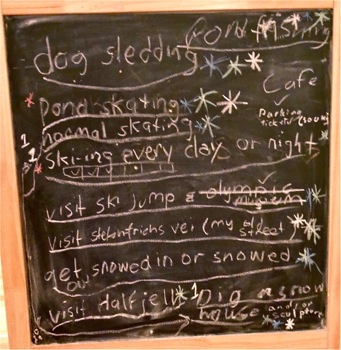 dog sledding
Pond fishing
Cafe
pond skating
Parking
normal skating
1
1 Ski-ing every day or night
visit ski jump & olympic museum
visit (my street)
get snowed in or snowed
on
visit Hafjell
1 Dig a snow
house and/or
sculpture